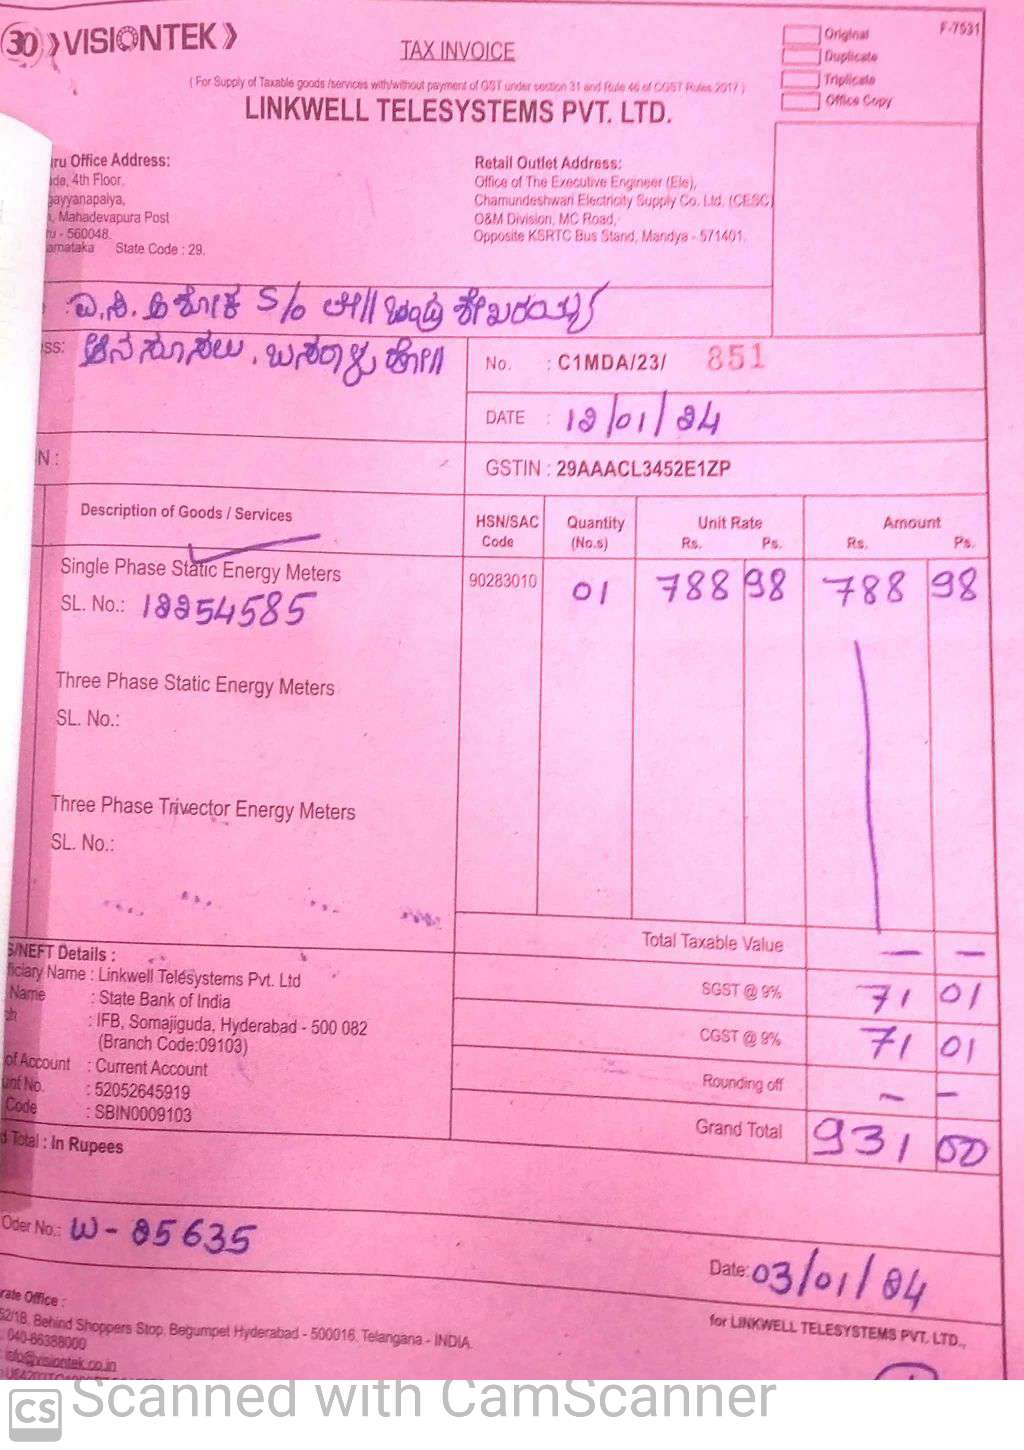 30 VISIONTEK
TAX INVOICE
F-7531
Original
Duplicate
Triplicate
Office Copy
( For Supply of Taxable goods /services with/without payment of GST under section 31 and Rule 46 of CGST Rules 2017 )
LINKWELL TELESYSTEMS PVT. LTD.
ru Office Address:
de, 4th Floor,
gayyanapalya,
, Mahadevapura Post
ru - 560048.
arnataka State Code : 29.
Retail Outlet Address:
Office of The Executive Engineer (Ele),
Chamundeshwari Electricity Supply Co. Ltd. (CESC)
O&M Division, MC Road,
Opposite KSRTC Bus Stand, Mandya - 571401.
: ಎ.ಸಿ. ಅಶೋಕ S/o ಲೇ|| ಚಂದ್ರಶೇಖರಯ್ಯ
ss: ಆನಸೋಸಲು, ಬಸರಾಳು ಹೋ||
No. : C1MDA/23/ 851
DATE : 12/01/24
N :
GSTIN : 29AAACL3452E1ZP
Description of Goods / Services HSN/SAC Code Quantity (No.s) Unit Rate Rs. Ps. Amount Rs. Ps.
Single Phase Static Energy Meters 90283010 01 788 98 788 98
SL. No.: 12254585
Three Phase Static Energy Meters
SL. No.:
Three Phase Trivector Energy Meters
SL. No.:
Total Taxable Value — —
SGST @ 9% 71 01
CGST @ 9% 71 01
Rounding off - -
Grand Total 931 00
S/NEFT Details :
ficiary Name : Linkwell Telesystems Pvt. Ltd
Name : State Bank of India
ch : IFB, Somajiguda, Hyderabad - 500 082
(Branch Code:09103)
of Account : Current Account
unt No. : 52052645919
Code : SBIN0009103
d Total : In Rupees
Oder No.: W - 25635
Date: 03/01/24
rate Office :
52/18, Behind Shoppers Stop, Begumpet Hyderabad - 500016, Telangana - INDIA.
: 040-66388000
info@visiontek.co.in
for LINKWELL TELESYSTEMS PVT. LTD.,
CS Scanned with CamScanner